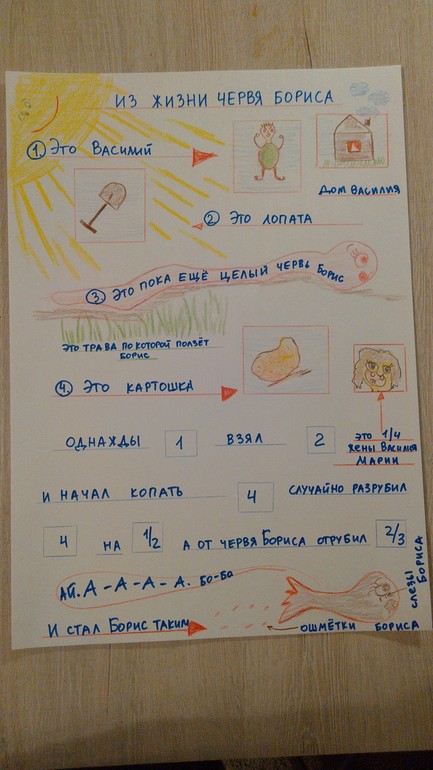 ИЗ ЖИЗНИ ЧЕРВЯ БОРИСА
1. ЭТО ВАСИЛИЙ
ДОМ ВАСИЛИЯ
2 ЭТО ЛОПАТА
3. ЭТО ПОКА ЕЩЁ ЦЕЛЫЙ ЧЕРВЬ БОРИС
ЭТО ТРАВА ПО КОТОРОЙ ПОЛЗЁТ
БОРИС
4. ЭТО КАРТОШКА
ЭТО 1/4
ЖЕНЫ ВАСИЛИЯ
МАРИИ
ОДНАЖДЫ 1 ВЗЯЛ 2
И НАЧАЛ КОПАТЬ 4 СЛУЧАЙНО РАЗРУБИЛ
4 НА 1/2 А ОТ ЧЕРВЯ БОРИСА ОТРУБИЛ 2/3
АЙ. А-А-А-А. БО-БО
СЛЕЗЫ БОРИСА
И СТАЛ БОРИС ТАКИМ
ОШМЁТКИ БОРИСА